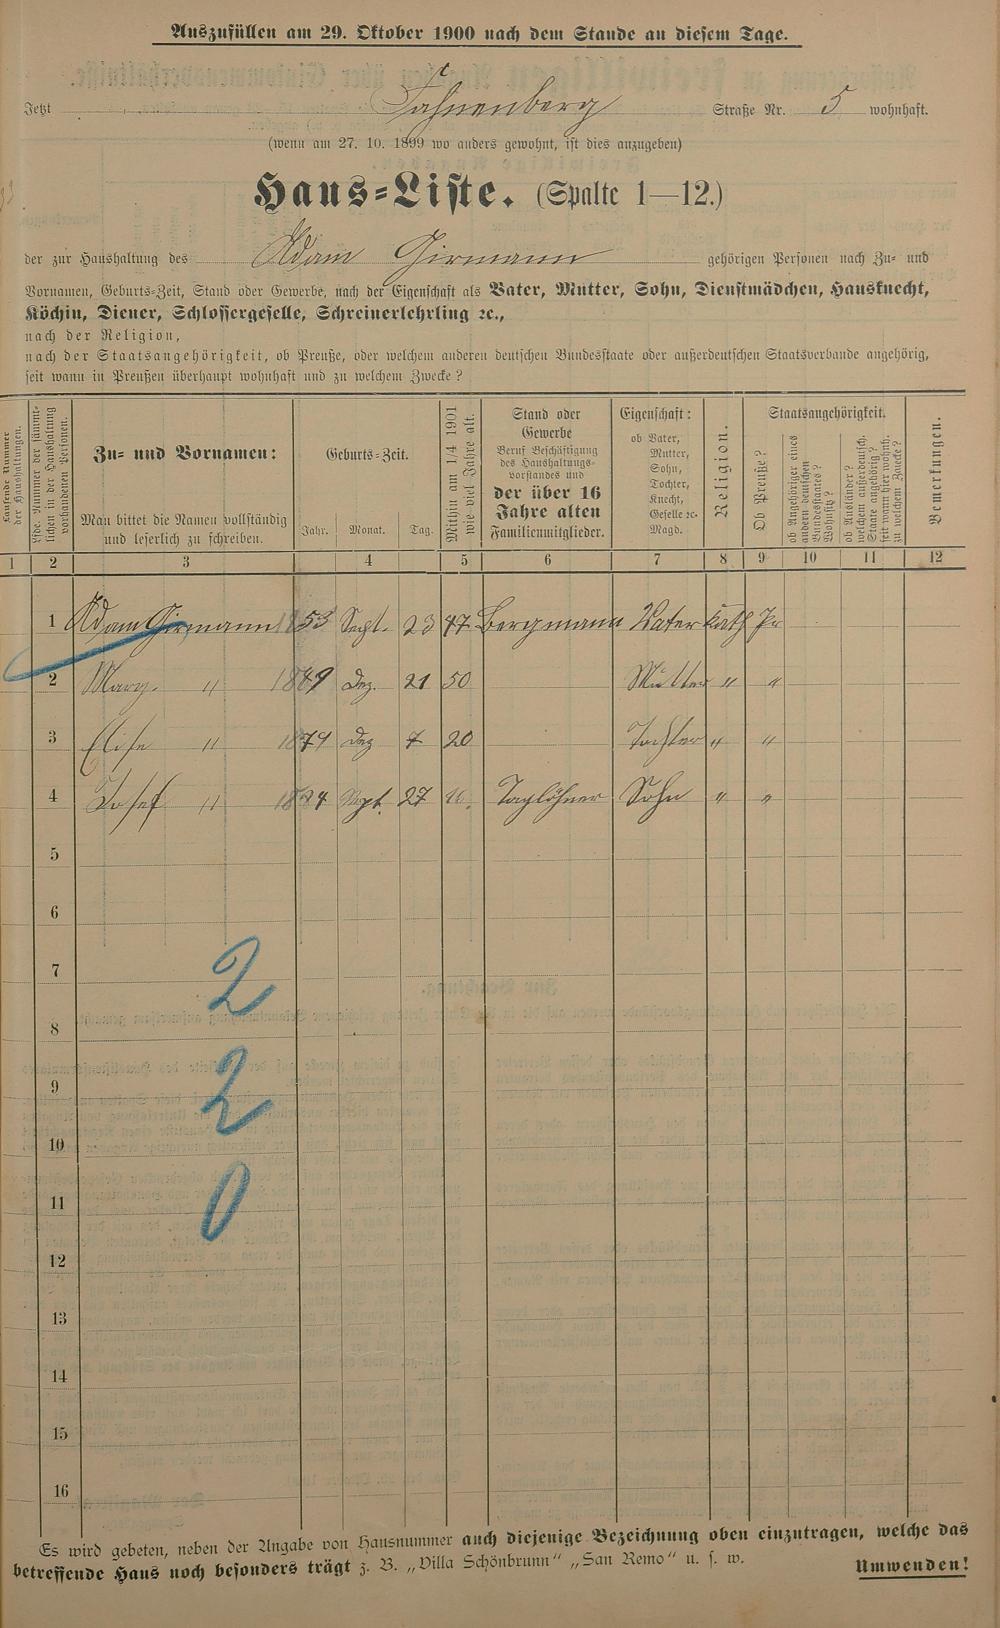 Auszufüllen am 29. Oktober 1900 nach dem Stande an diesem Tage.
Jetzt Fahnenberg Straße Nr. 5 wohnhaft.
(wenn am 27. 10. 1899 wo anders gewohnt, ist dies anzugeben)
Haus-Liste. (Spalte 1—12.)
der zur Haushaltung des Adam Girmann gehörigen Personen nach Zu- und
Vornamen, Geburts-Zeit, Stand oder Gewerbe, nach der Eigenschaft als Vater, Mutter, Sohn, Dienstmädchen, Hausknecht,
Köchin, Diener, Schlossergeselle, Schreinerlehrling ꝛc.,
nach der Religion,
nach der Staatsangehörigkeit, ob Preuße, oder welchem anderen deutschen Bundesstaate oder außerdeutschen Staatsverbande angehörig,
seit wann in Preußen überhaupt wohnhaft und zu welchem Zwecke?
Laufende Nummer der Haushaltungen.
Lfde. Nummer der sämmtlichen in der Haushaltung vorhandenen Personen.
Zu- und Vornamen:
Man bittet die Namen vollständig
und leserlich zu schreiben.
Geburts-Zeit.
Jahr. Monat. Tag.
Mithin am 1/4 1901 wie viel Jahre alt.
Stand oder
Gewerbe
Beruf Beschäftigung
des Haushaltungs-
vorstandes und
der über 16
Jahre alten
Familienmitglieder.
Eigenschaft:
ob Vater,
Mutter,
Sohn,
Tochter,
Knecht,
Geselle ꝛc.
Magd.
Religion.
Staatsangehörigkeit.
Ob Preuße?
ob Angehöriger eines andern deutschen Bundesstaates? Wohnsitz?
ob Ausländer? welchem außerdeutsch. Staate angehörig? seit wann hier wohnh. zu welchem Zwecke?
Bemerkungen.
1 2 3 4 5 6 7 8 9 10 11 12
1 Adam Girmann 1853 Sept. 23 47 Bergmann Vater kath Pr
2 Marg. " 1849 Dez. 21 50 Mutter " "
3 Elise " 1879 Dez 7 20 Tochter " "
4 Josef " Sept. 27 16. Taglöhner Sohn " "
5
6
7
2
8
9
2
10
11
0
12
13
14
15
16
Es wird gebeten, neben der Angabe von Hausnummer auch diejenige Bezeichnung oben einzutragen, welche das
betreffende Haus noch besonders trägt z. B. „Villa Schönbrunn“ „San Remo“ u. s. w.
Umwenden!